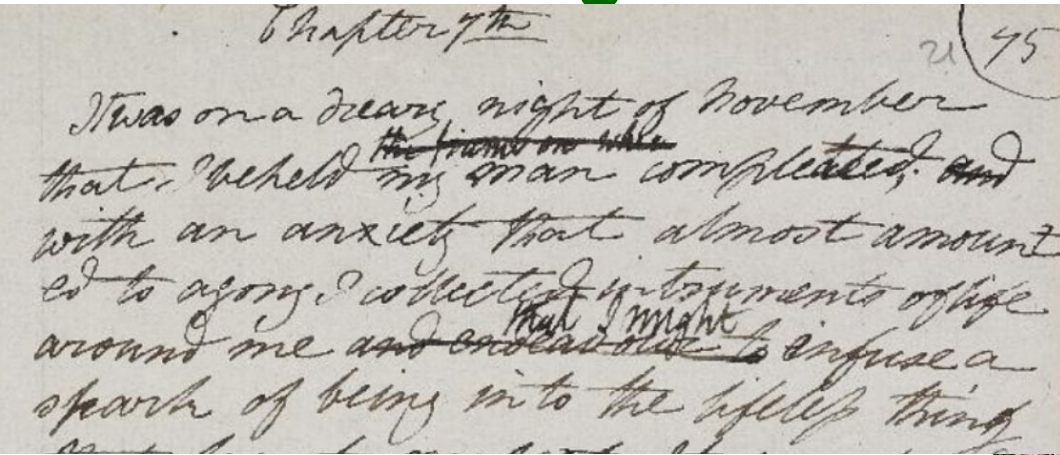 Chapter 7th
21 75
It was on a dreary night of November
the frame on when
that I beheld my man compleated, and
with an anxiety that almost amount
ed to agony I collected instruments of life
that I might
around me and endeavour to infuse a
spark of being into the lifeless thing